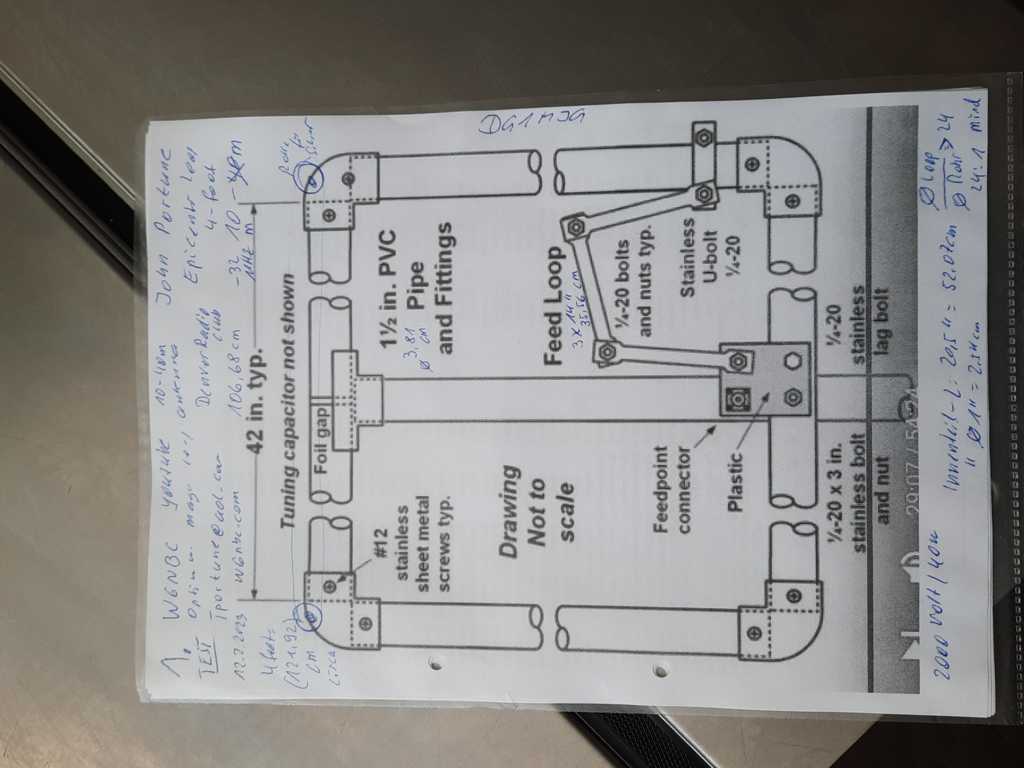 1. W6NBC youtube 10-40m John Portune
TEST Optimum mage loop antenna Epicenter Lom
jportune@aol.com DenverRadio Club 4-foot
12.7.2023 W6nbc.com 106,68cm -32 10 -
MHZ m
4 feet
(121.92)
cm
circa
42 in. typ.
Tuning capacitor not shown
Foil gap
#12
stainless
sheet metal
screws typ.
1½ in. PVC
Pipe
and Fittings
3,81
Ø cm
Drawing
Not to
scale
Feed Loop
3 x 14"
35.56 cm
¼-20 bolts
and nuts typ.
Stainless
U-bolt
¼-20
Feedpoint
connector
Plastic
¼-20 x 3 in.
stainless bolt
and nut
¼-20
stainless
lag bolt
2000 volt/40W
Innenteil-L: 20,5" = 52.07cm
" Ø 1" = 2.54cm
Ø Loop
Ø Rohr > 24
24:1 mind